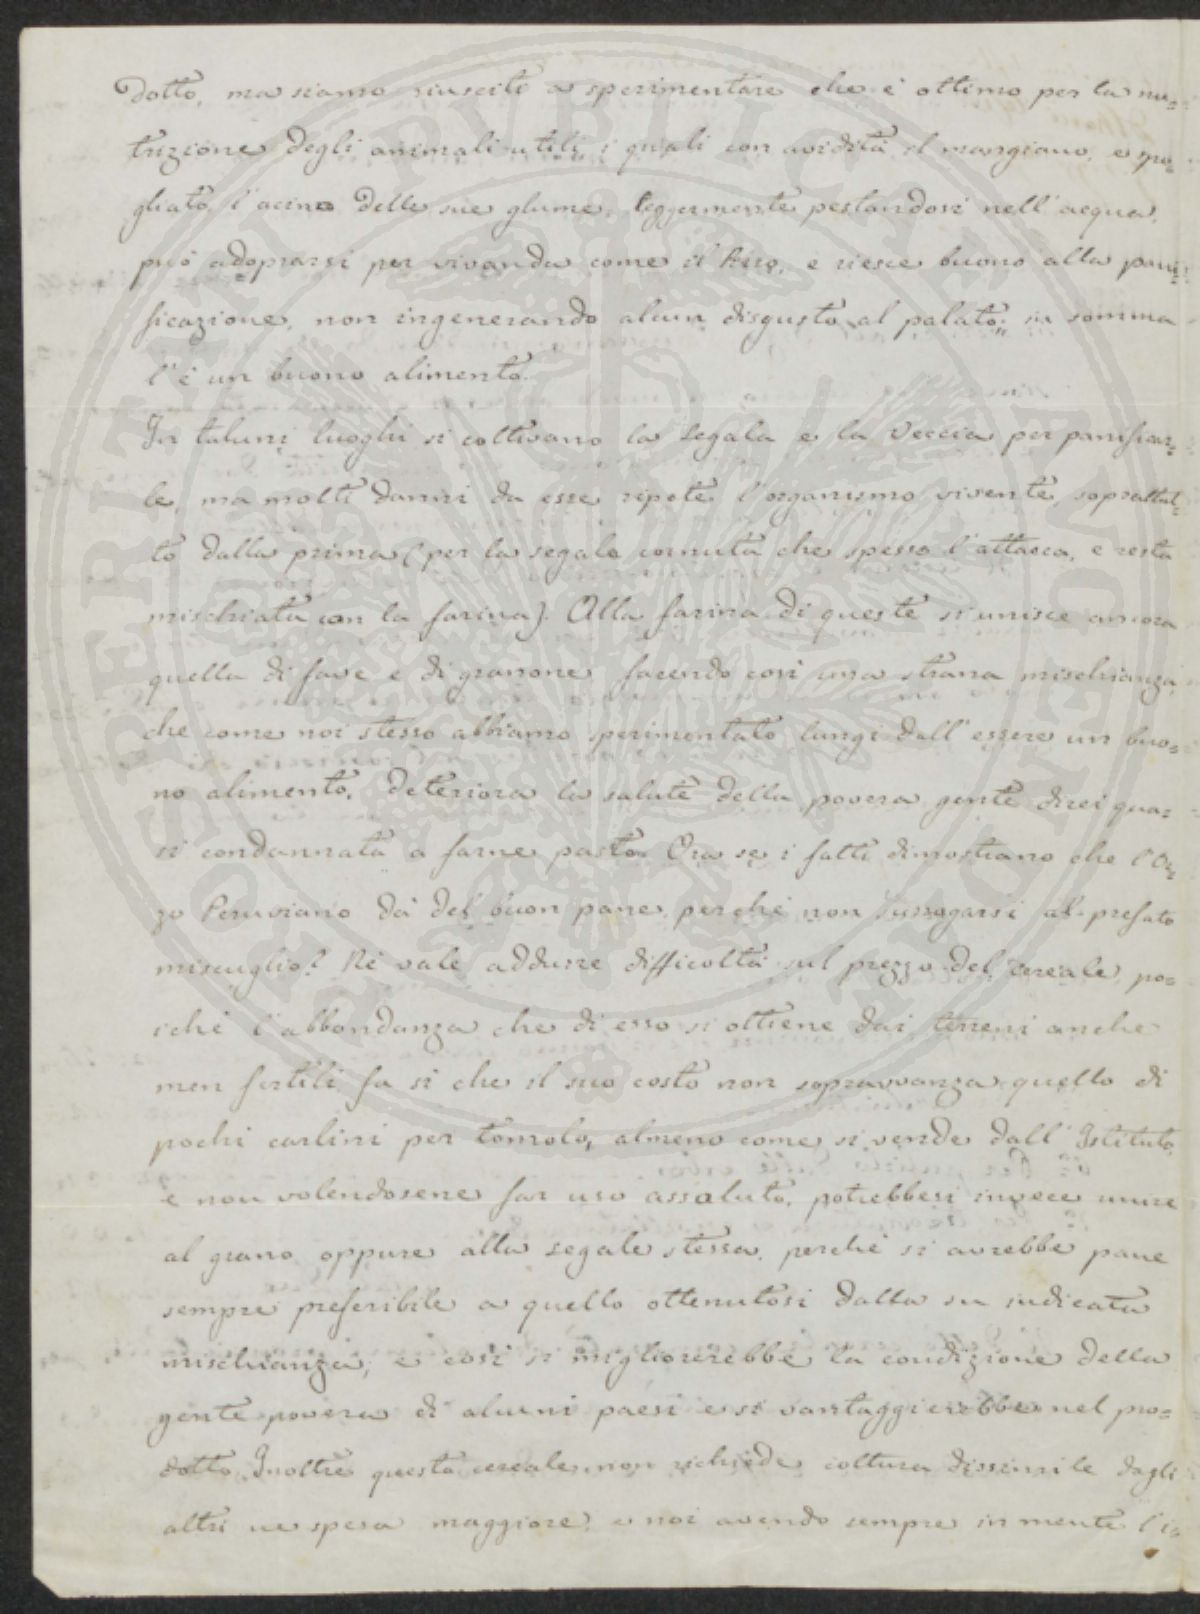 dotto, ma siamo riusciti a sperimentare che è ottimo per la nu=
trizione degli animali utili, i quali con avidità il mangiano, e spo=
gliato l'acino delle sue glume, leggermente pestandosi nell'acqua,
può adoprarsi per vivanda come il Riso, e riesce buono alla pani=
ficazione, non ingenerando alcun disgusto al palato; in somma
l'è un buono alimento.
In taluni luoghi si coltivano la Segala e la Veccia per panificar=
le, ma molti danni da esse ripote l'organismo vivente, soprattut=
to dalla prima (per la segala cornuta che spesso l'attacca, e resta
mischiata con la farina). Alla farina di queste si unisce ancora
quella di fave e di granone facendo così una strana mischianza,
che come noi stesso abbiamo sperimentato lungi dall'essere un buo=
no alimento, deteriora la salute della povera gente direi qua=
si condannata a farne pasto. Ora se i fatti dimostrano che l'Or=
zo Peruviano dà del buon pane, perchè non surrogarsi al prefato
miscuglio? Nè vale addurre difficoltà sul prezzo del cereale, po=
ichè l'abbondanza che di esso si ottiene dai terreni anche
men fertili fa si che il suo costo non sopravvanza quello di
pochi carlini per tomolo, almeno come si vende dall'Istituto,
e non volendosene far uso assoluto, potrebbesi invece unire
al grano oppure alla segale stessa, perchè si avrebbe pane
sempre preferibile a quello ottenutosi dalla su indicata
mischianza, e così si migliorerebbe la condizione della
gente povera di alcuni paesi e si vantaggierebbe nel pro=
dotto. Inoltre questa cereale non richiede coltura dissimile dagli
altri ne spesa maggiore, e noi avendo sempre in mente l'i=
PROSPERITATI PUBLICAE AUGENDAE